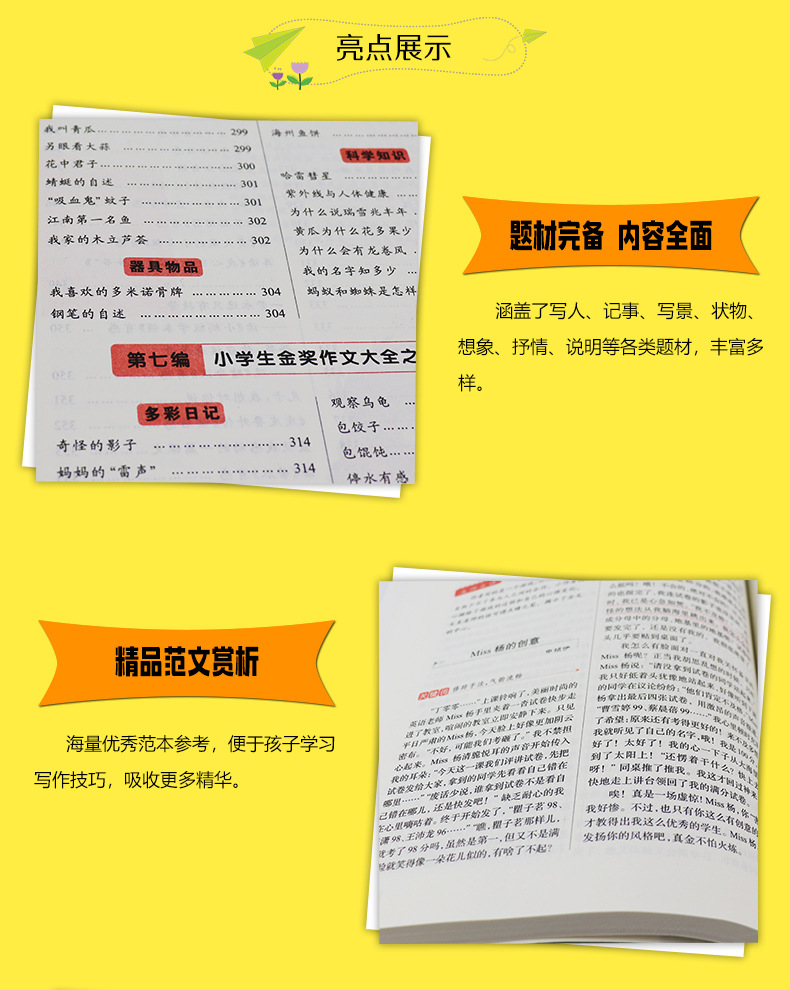 亮点展示
我叫青瓜……………………………… 299
另眼看大蒜 ……………………………… 299
花中君子……………………………… 300
蜻蜓的自述 ……………………………… 301
“吸血鬼”蚊子 ……………………………… 301
江南第一名鱼 ……………………………… 302
我家的木立芦荟 ……………………………… 302
器具物品
我喜欢的多米诺骨牌 ……………………………… 304
钢笔的自述 ……………………………… 304
海州鱼饼
科学知识
哈雷彗星
紫外线与人体健康
为什么说瑞雪兆丰年
黄瓜为什么花多果少
为什么会有龙卷风
我的名字知多少
蚂蚁和蜘蛛是怎样
第七编 小学生金奖作文大全之
多彩日记
奇怪的影子 ……………………………… 314
妈妈的“雷声” ……………………………… 314
观察乌龟
包饺子
包馄饨
停水有感
题材完备 内容全面
涵盖了写人、记事、写景、状物、
想象、抒情、说明等各类题材，丰富多
样。
精品范文赏析
海量优秀范本参考，便于孩子学习
写作技巧，吸收更多精华。
Miss 杨的创意
关键词 修辞手法，气韵流畅
“丁零零……”上课铃响了，美丽时尚的
英语老师 Miss 杨手里夹着一沓试卷快步走
进了教室，喧闹的教室立即安静下来。只见
平日严肃的Miss杨，今天脸上好像更加阴云
密布。“不好，可能我们考砸了。”我不禁担
心起来。Miss 杨清脆悦耳的声音开始传入
我的耳朵：“今天这一课我们评讲试卷，先把
试卷发给大家，拿到的同学先看看自己错在
哪里……”“废话少说，谁拿到试卷不是看自
己错在哪儿，还是快发吧！”缺乏耐心的我
在心里嘀咕着。终于开始发了，“瞿子茗 98、
潇 98、王沛龙 96……”“瞧，瞿子茗那样儿，
就考了98分吗，虽然是第一，但又不是满
脸就笑得像一朵花儿似的，有啥了不起？
要发完了，还是没有我的，我
头几乎要贴到桌面了。
我怎么有脸面对一直对我关
Miss 杨呢？正当我胡思乱想的时候
Miss 杨说：“请没拿到试卷的同学
我只好低着头犹豫地站起来，好像听到
的同学在议论纷纷：“他们肯定不及格
杨拿出最后四张试卷，用激昂的声音
“曹雪婷99、蔡晨蓓99……”我心里顿时
了希望：原来还有考得更好的！来不及多
我就听见了自己的名字，哦！我是100分
好了！太好了！我的心一下子从大
到了太阳上！“还愣着干什么？快上去
呀！”同桌推了推我。我这才回过神来
快地走上讲台领回了我的满分试卷。
唉！真是一场虚惊！Miss 杨，你“
我好惨。不过，也只有你这么有创意的
才教得出我这么优秀的学生。Miss 杨
发扬你的风格吧，真金不怕火炼。